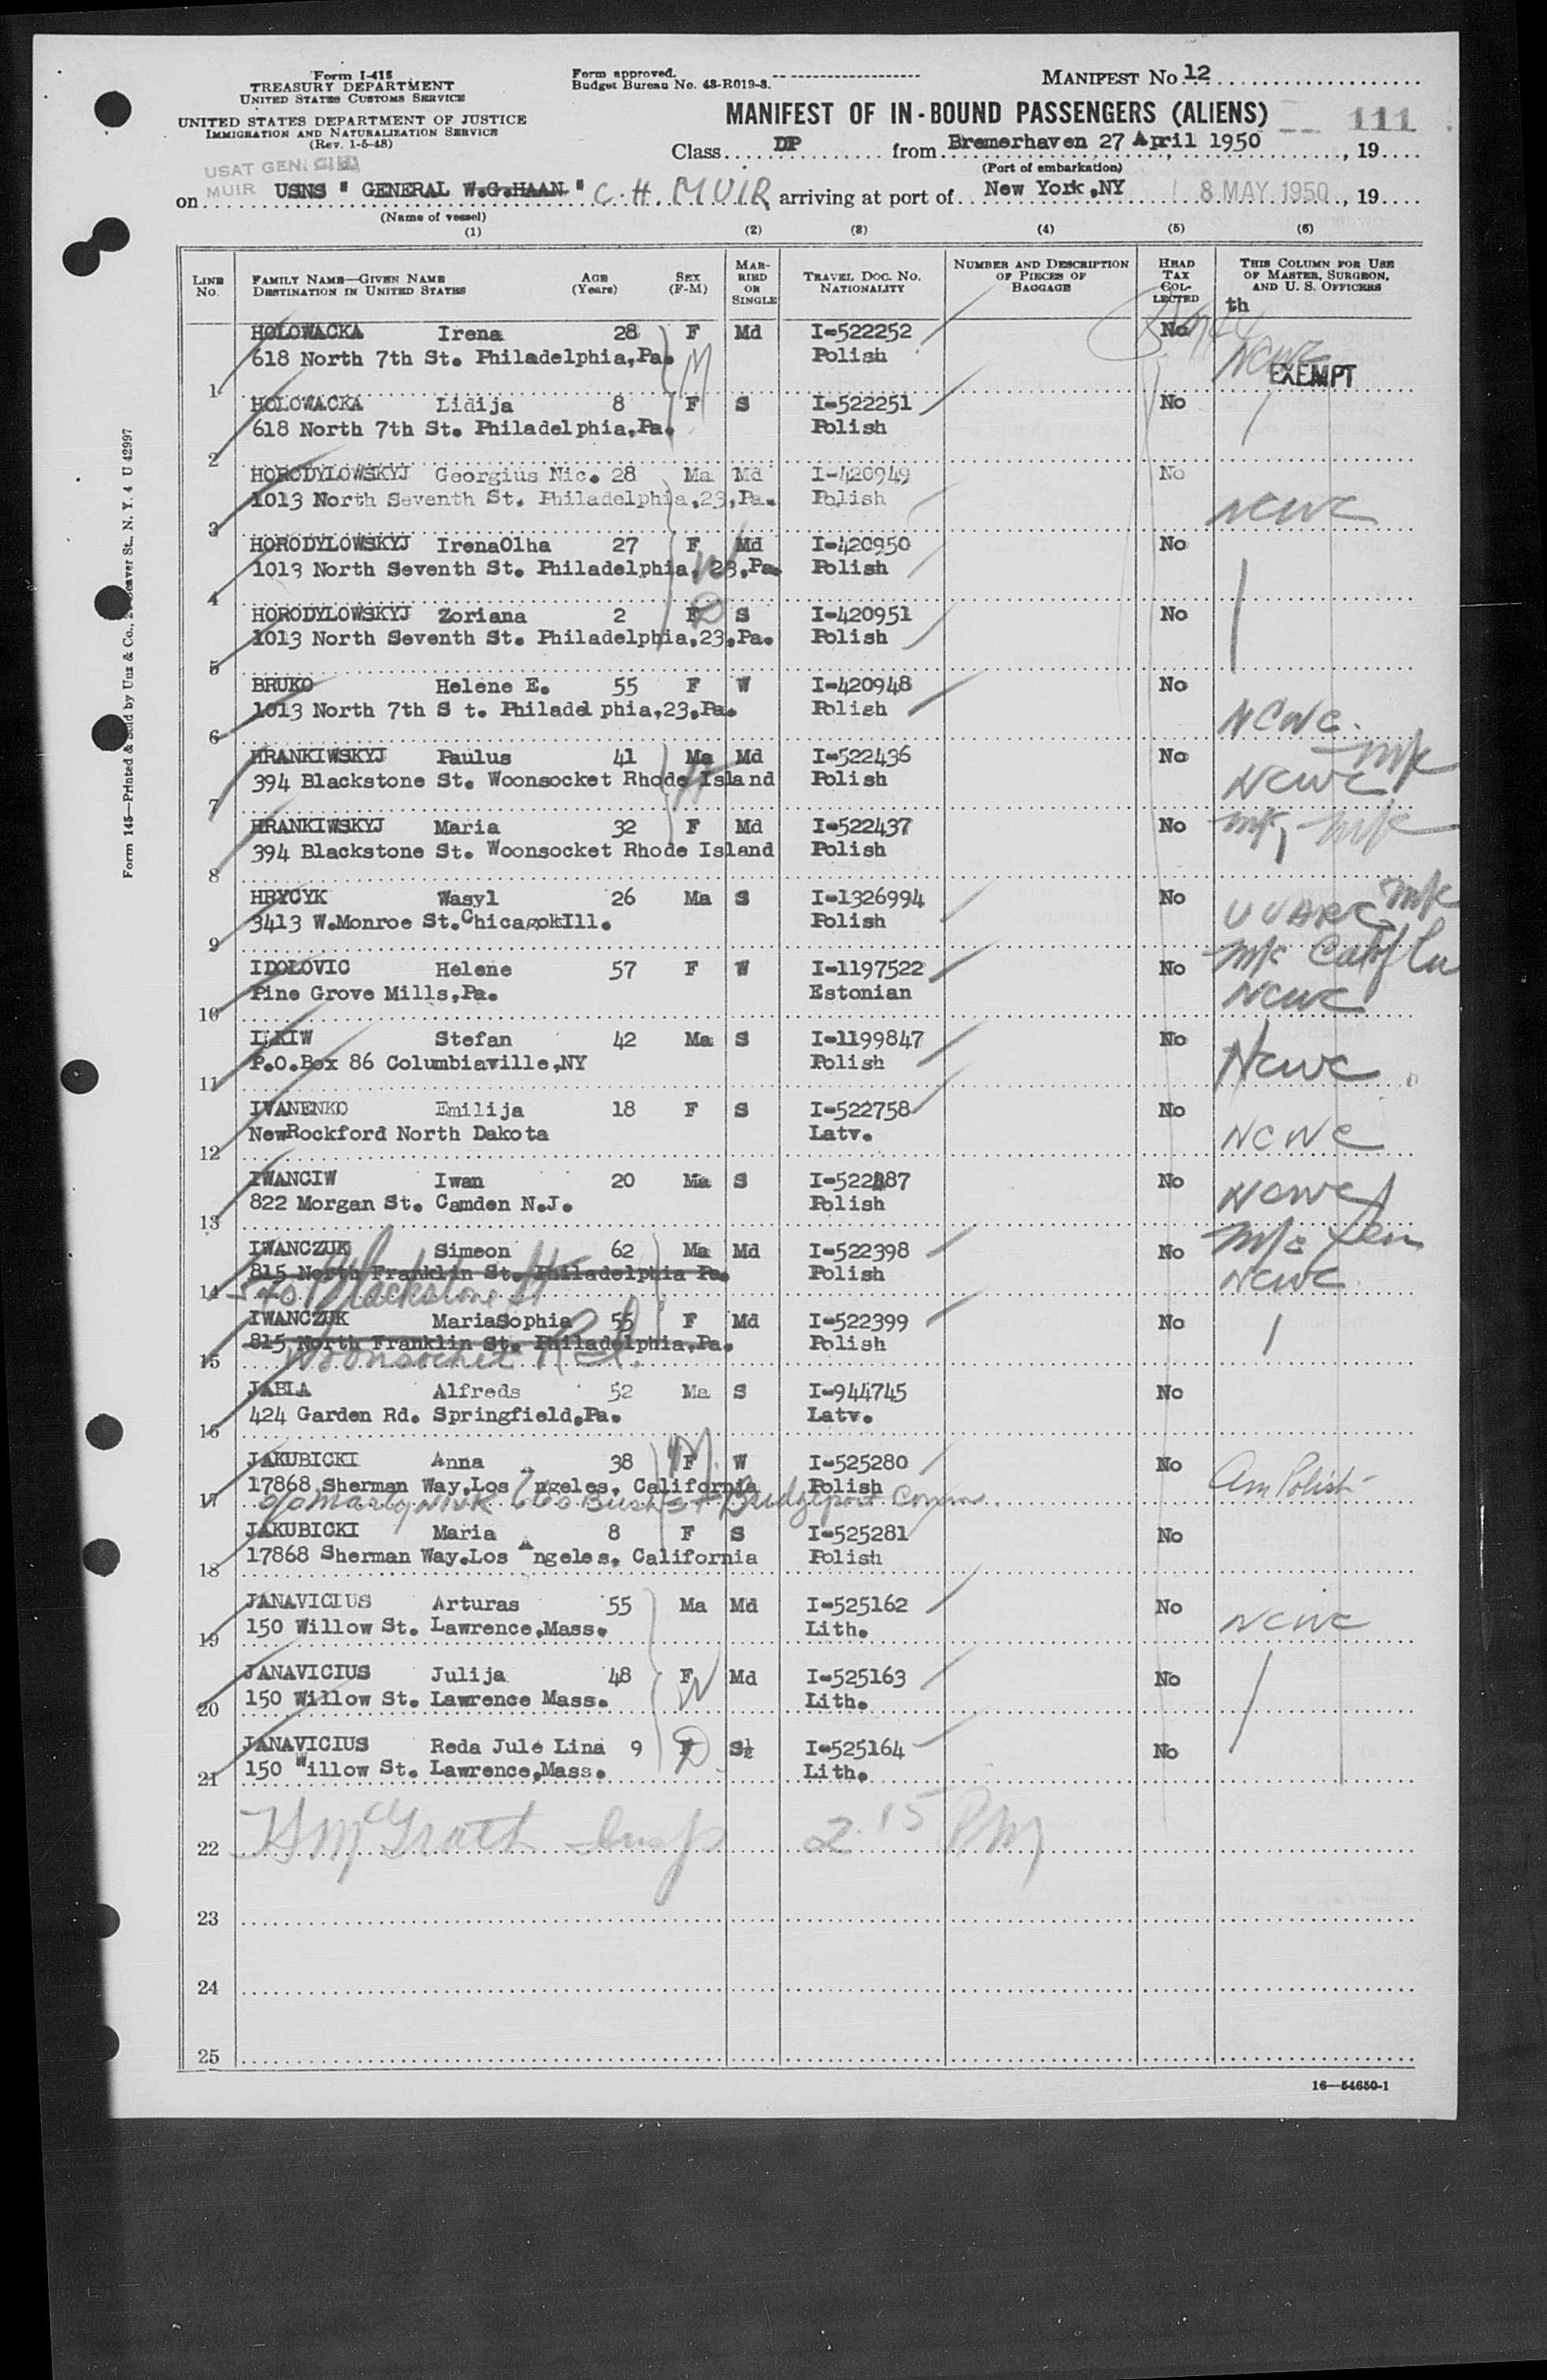 Form I-415
TREASURY DEPARTMENT
UNITED STATES CUSTOMS SERVICE
UNITED STATES DEPARTMENT OF JUSTICE
IMMIGRATION AND NATURALIZATION SERVICE
(Rev. 1-5-48)
Form approved.
Budget Bureau No. 43-R019-3.
MANIFEST No. 12
MANIFEST OF IN-BOUND PASSENGERS (ALIENS) 111
Class DP from Bremerhaven 27 April 1950, 19
(Port of embarkation)
USAT GEN. C.H.
MUIR
on USNS " GENERAL W.G.HAAN " C. H. MUIR arriving at port of New York,NY 8 MAY 1950, 19
(Name of vessel)
(1) (2) (3) (4) (5) (6)
LINE No. FAMILY NAME—GIVEN NAME DESTINATION IN UNITED STATES AGE (Years) SEX (F-M) MARRIED OR SINGLE TRAVEL DOC. No. NATIONALITY NUMBER AND DESCRIPTION OF PIECES OF BAGGAGE HEAD TAX COLLECTED THIS COLUMN FOR USE OF MASTER, SURGEON, AND U. S. OFFICERS
th
HOLOWACKA Irena 28 F Md I-522252 No
618 North 7th St. Philadelphia,Pa. M Polish NCWC
1 EXEMPT
HOLOWACKA Lidija 8 F S I-522251 No
618 North 7th St. Philadelphia,Pa. Polish
2
HORODYLOWSKYJ Georgius Nic. 28 Ma Md I-420949 No
1013 North Seventh St. Philadelphia,23,Pa. Polish NCWC
3
HORODYLOWSKYJ IrenaOlha 27 F Md I-420950 No
1013 North Seventh St. Philadelphia, 23,Pa. Polish
4
HORODYLOWSKYJ Zoriana 2 F S I-420951 No
1013 North Seventh St. Philadelphia,23,Pa. Polish
5
BRUKO Helene E. 55 F W I-420948 No
1013 North 7th S t. Philadel phia,23,Pa. Polish NCWC
6
HRANKIWSKYJ Paulus 41 Ma Md I-522436 No M/c
394 Blackstone St. Woonsocket Rhode Island Polish NCWC
7
HRANKIWSKYJ Maria 32 F Md I-522437 No M/c
394 Blackstone St. Woonsocket Rhode Island Polish
8
HRYCYK Wasyl 26 Ma S I-1326994 No M/c
3413 W.Monroe St.Chicago Ill. Polish UUARC
9
IDOLOVIC Helene 57 F W I-1197522 No M/c
Pine Grove Mills,Pa. Estonian NCWC
10
ILKIW Stefan 42 Ma S I-1199847 No
P.O.Box 86 Columbiaville,NY Polish NCWC
11
IVANENKO Emilija 18 F S I-522758 No
NewRockford North Dakota Latv. NCWC
12
IWANCIW Iwan 20 Ma S I-522887 No
822 Morgan St. Camden N.J. Polish NCWC
13
IWANCZUK Simeon 62 Ma Md I-522398 No M/c
815 North Franklin St. Philadelphia Pa. Polish NCWC
14 Blackstone St
IWANCZUK MariaSophia 55 F Md I-522399 No
815 North Franklin St. Philadelphia,Pa. Polish
15 Woonsocket R.I.
JABLA Alfreds 52 Ma S I-944745 No
424 Garden Rd. Springfield,Pa. Latv.
16
JAKUBICKI Anna 38 F W I-525280 No
17868 Sherman Way,Los Angeles, California Polish Am Polish
17 660 Bush St Bridgeport Conn.
JAKUBICKI Maria 8 F S I-525281 No
17868 Sherman Way.Los Angeles, California Polish
18
JANAVICIUS Arturas 55 Ma Md I-525162 No
150 Willow St. Lawrence,Mass. Lith. NCWC
19
JANAVICIUS Julija 48 F Md I-525163 No
150 Willow St. Lawrence Mass. W Lith.
20
JANAVICIUS Reda Jule Lina 9 F S I-525164 No
150 Willow St. Lawrence,Mass. D Lith.
21
22 H McGrath Insp 2 15 PM
23
24
25
16—54650-1